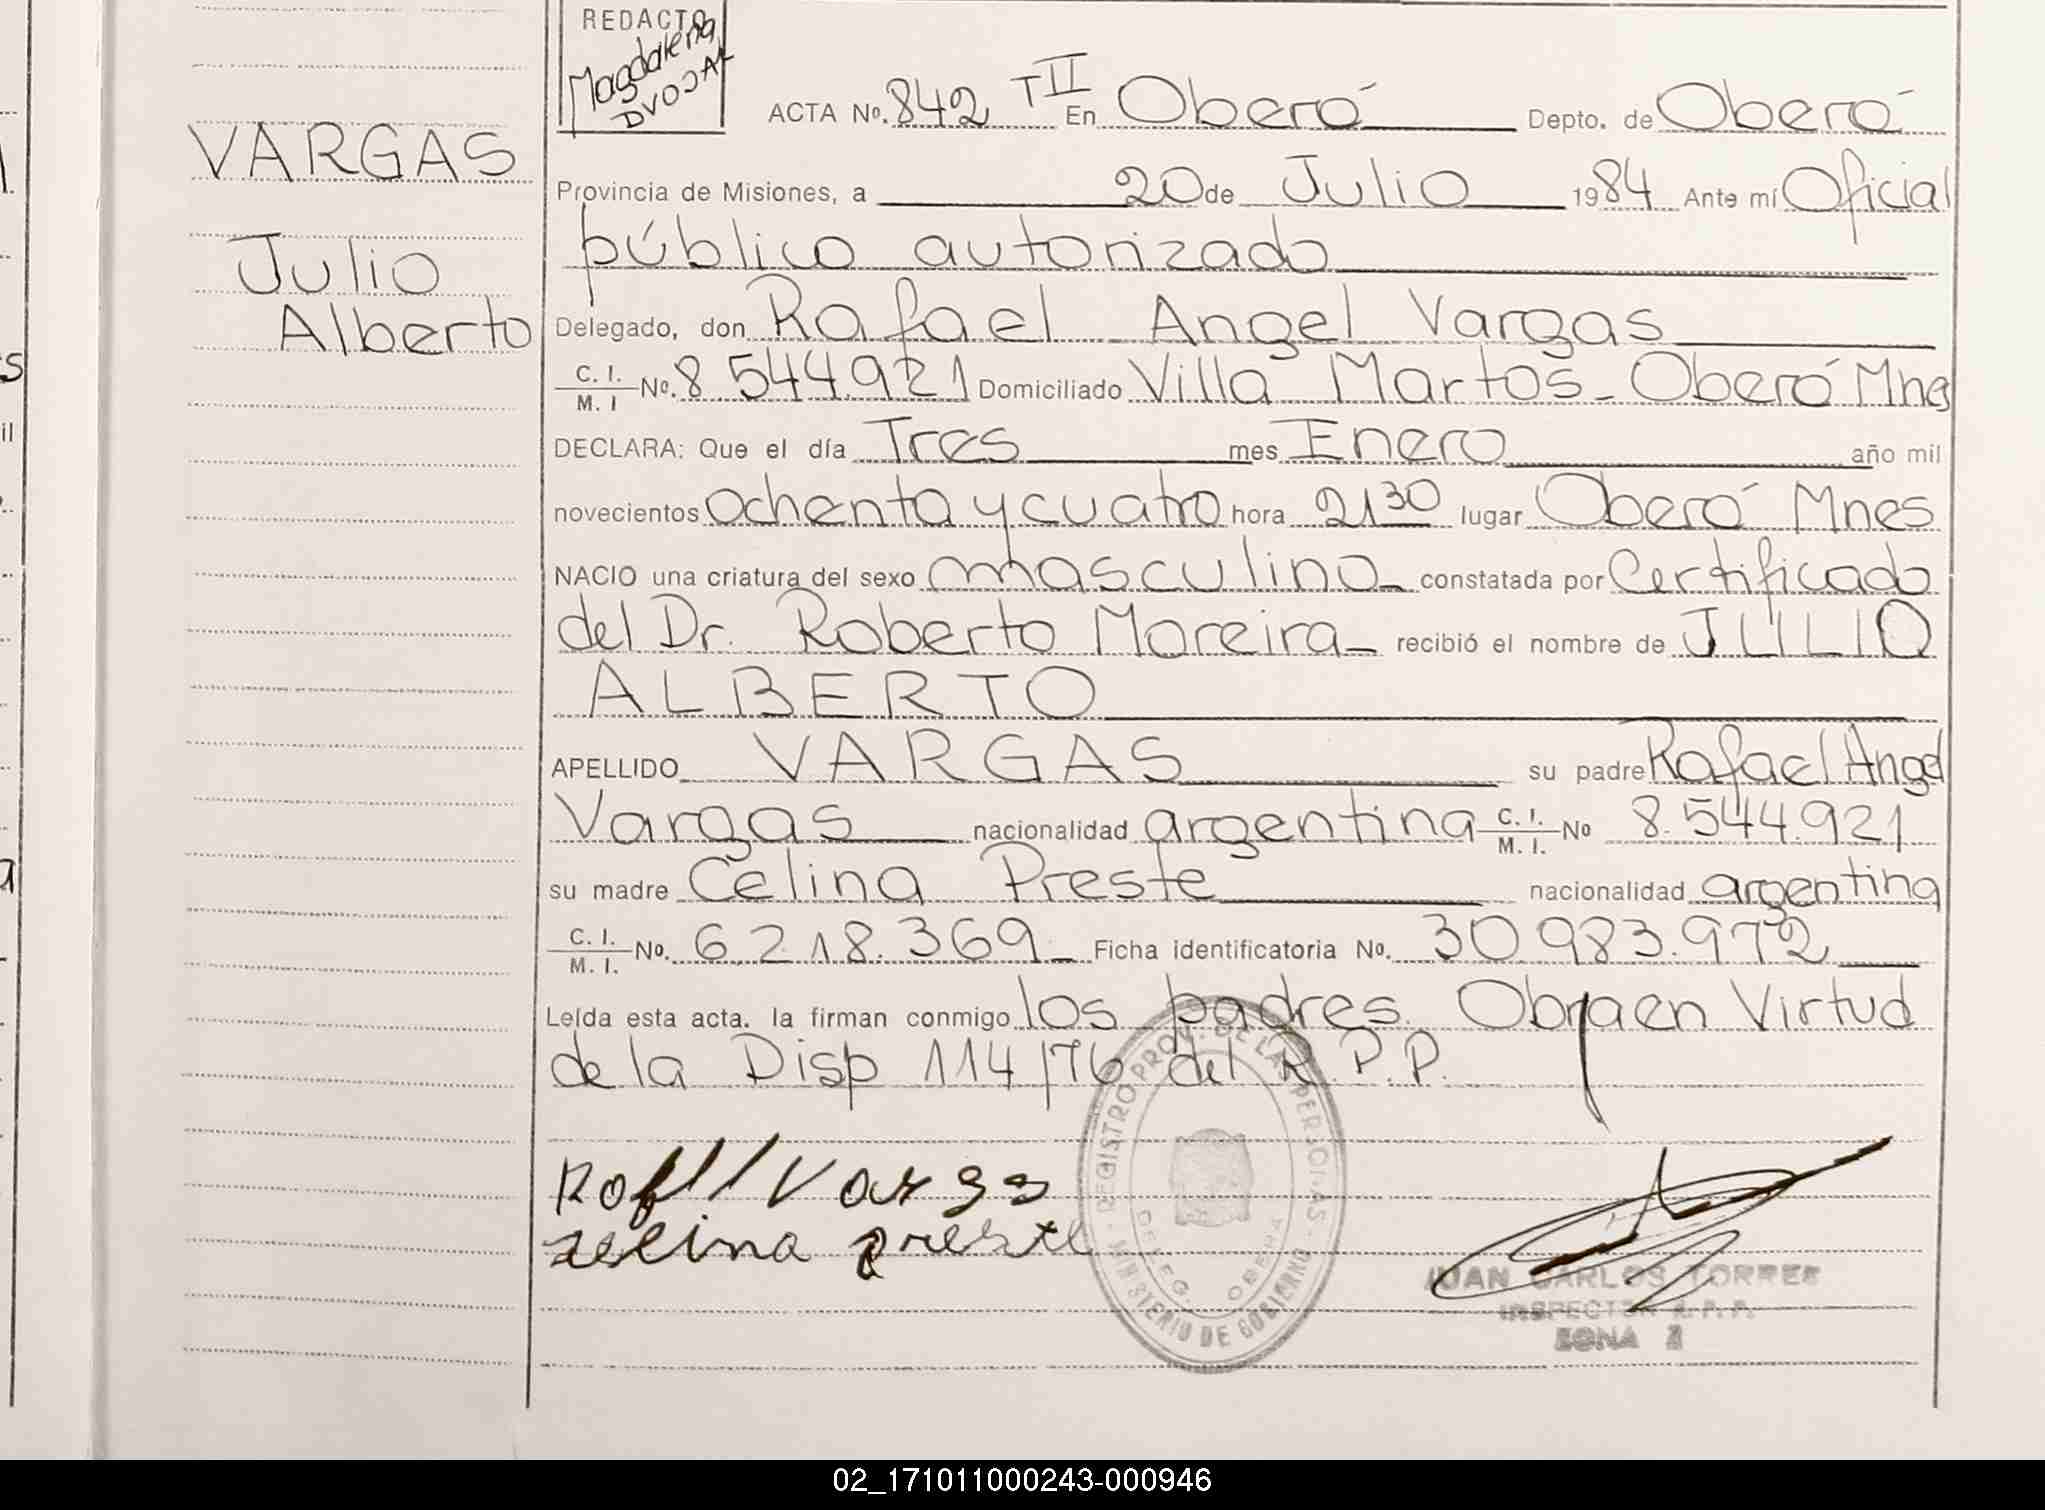 REDACTO
Magdalena
DVOJAK
ACTA No. 842 T II En Oberá Depto. de Oberá
VARGAS
Provincia de Misiones, a 20 de Julio 1984 Ante mí Oficial
público autorizado
Julio
Alberto
Delegado, don Rafael Angel Vargas
C. I. / M. I No. 8 544.921 Domiciliado Villa Martos - Oberá Mnes
DECLARA: Que el día Tres mes Enero año mil
novecientos ochenta y cuatro hora 21 30 lugar Oberá Mnes
NACIO una criatura del sexo masculino constatada por Certificado
del Dr. Roberto Moreira recibió el nombre de JULIO
ALBERTO
APELLIDO VARGAS su padre Rafael Angel
Vargas nacionalidad argentina C. I. / M. I. No 8.544.921
su madre Celina Preste nacionalidad argentina
C. I. / M. I. No. 6.218.369 Ficha identificatoria No. 30.983.972
Leída esta acta. la firman conmigo los padres. Obra en Virtud
de la Disp 114/76 del R.P.P.
REGISTRO PROV. DE LAS PERSONAS - MINISTERIO DE GOBIERNO
DELEG. OBERA
Rafael Vargas
zelina preste
JUAN CARLOS TORRES
INSPECTOR R.P.P.
ZONA 2
02_171011000243-000946